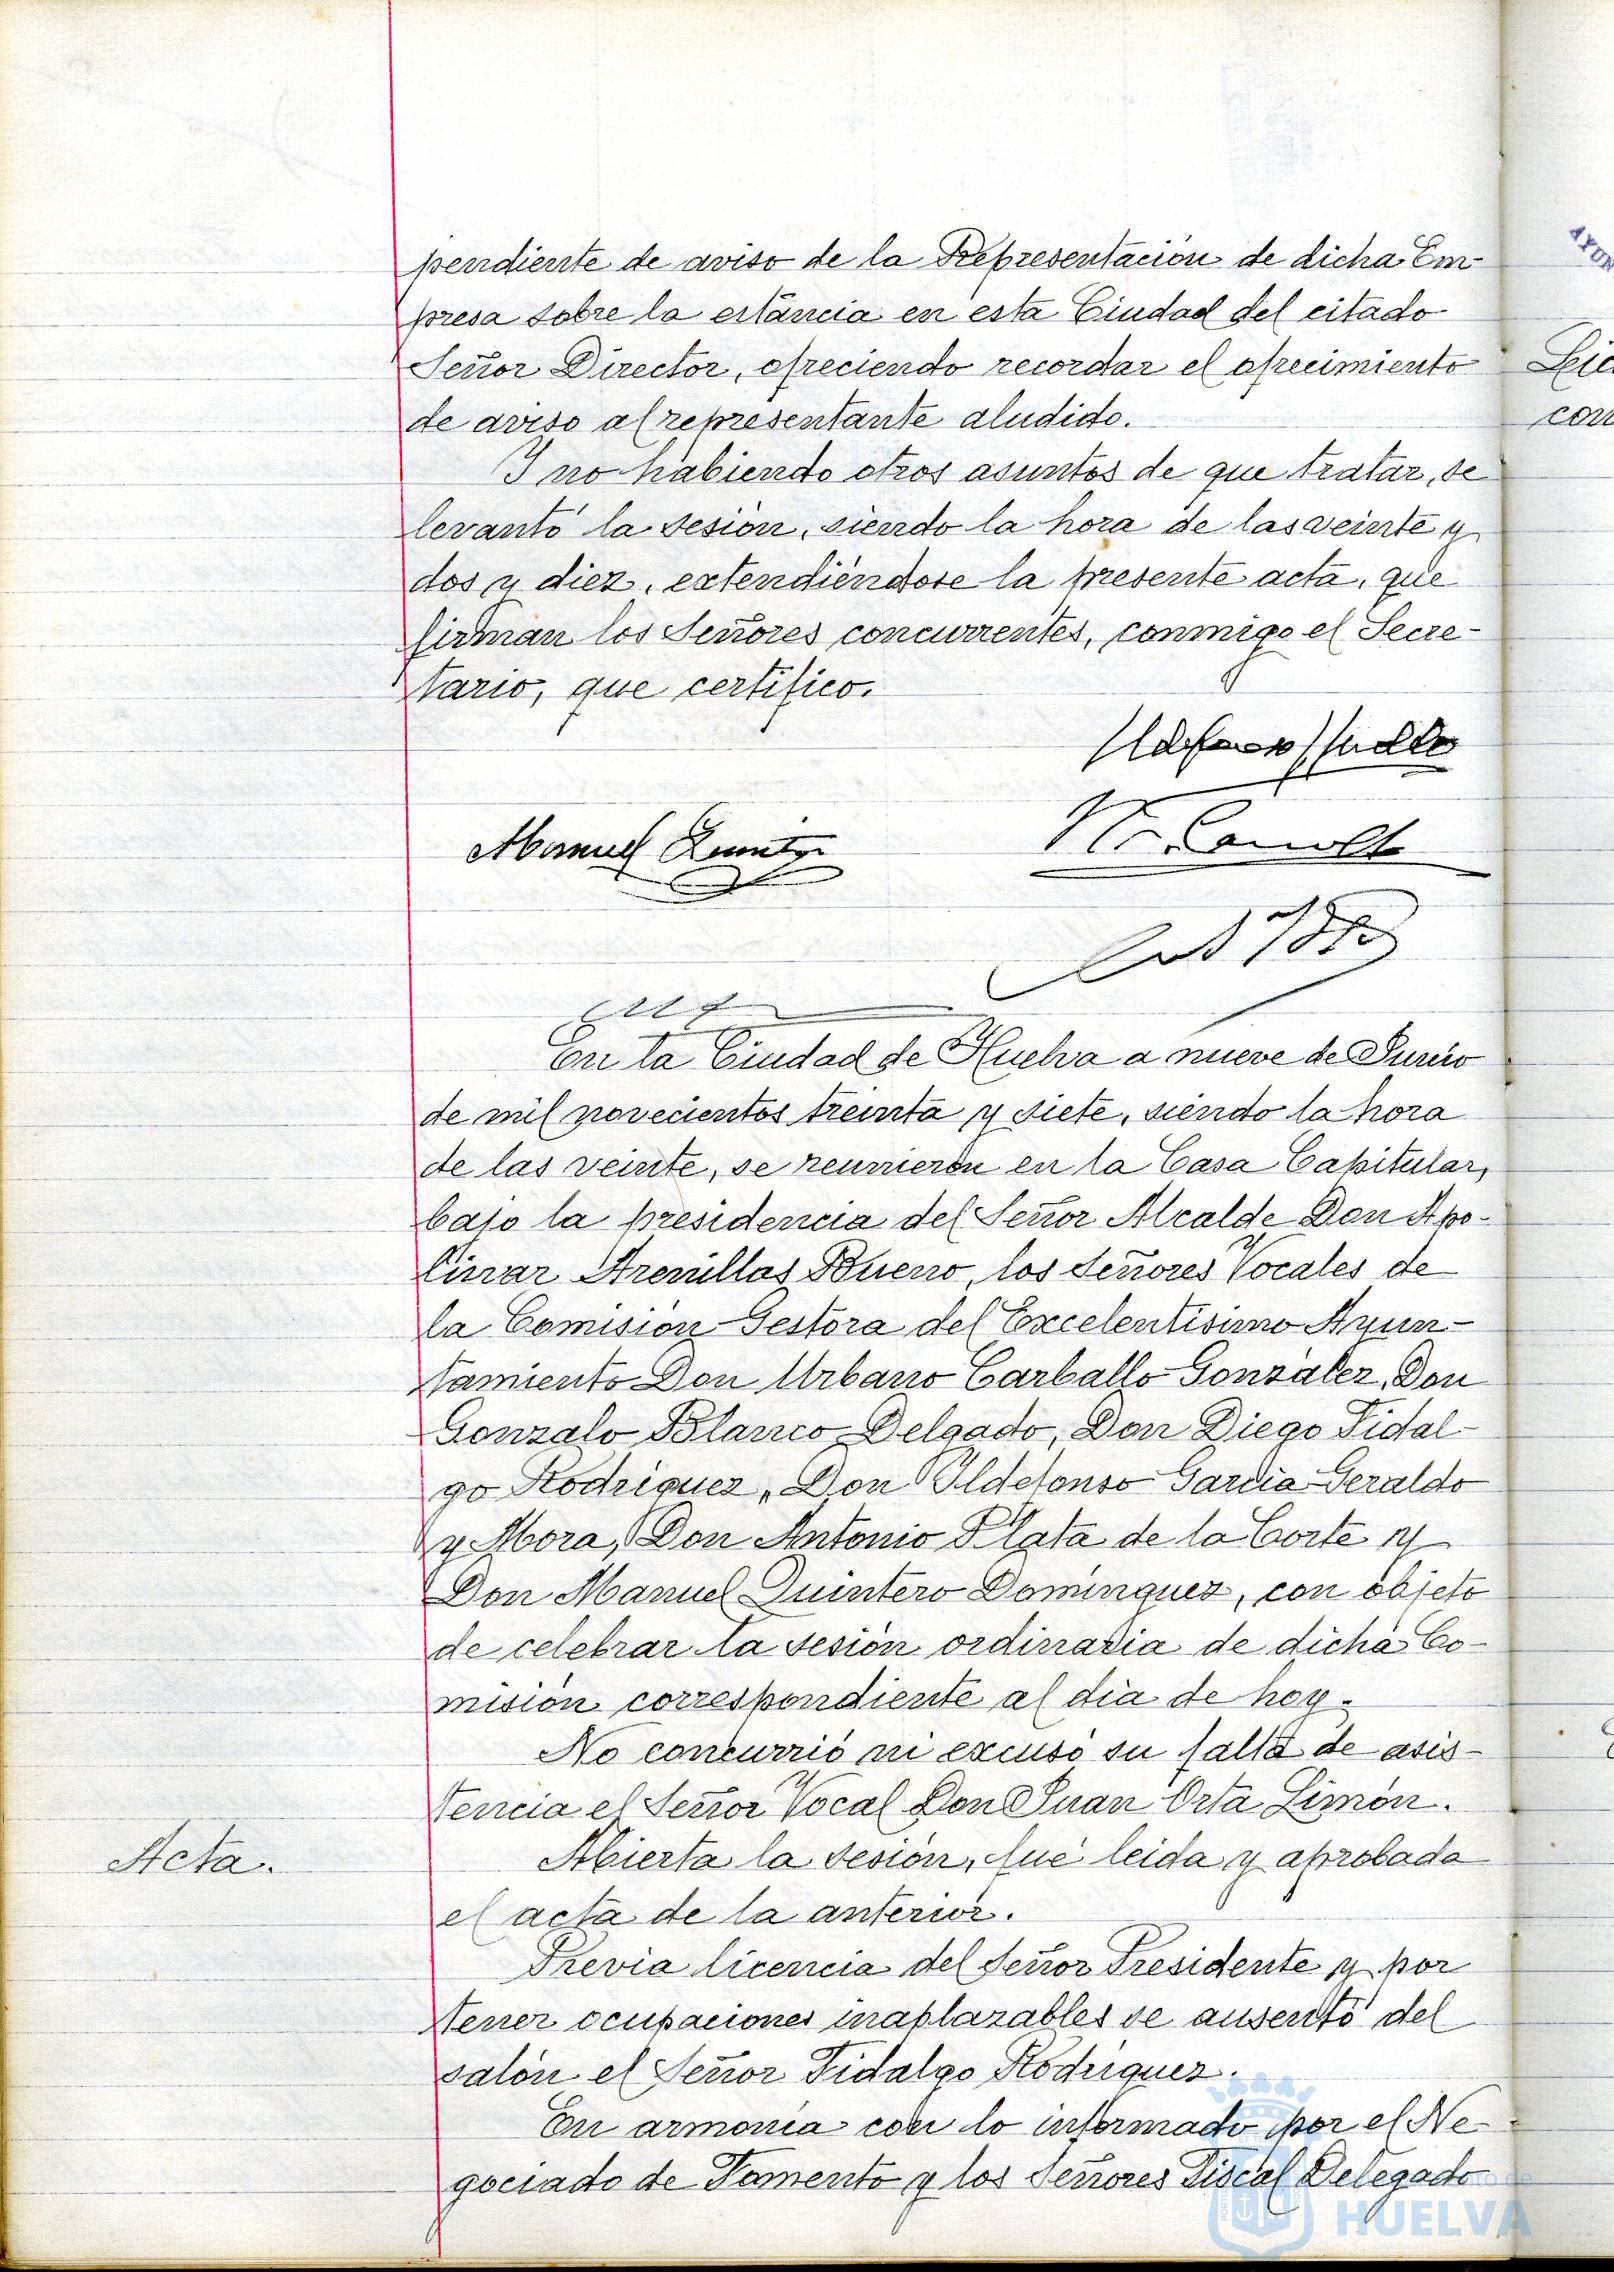 pendiente de aviso de la Representación de dicha Em-
presa sobre la estáncia en esta Ciudad del citado
Señor Director, ofreciendo recordar el ofrecimiento
de aviso al representante aludido.
Y no habiendo otros asuntos de que tratar, se
levantó la sesión, siendo la hora de las veinte y
dos y diez, extendiéndose la presente acta, que
firman los Señores concurrentes, conmigo el Secre-
tario, que certifico.
Manuel
En la Ciudad de Huelva a nueve de Junio
de mil novecientos treinta y siete, siendo la hora
de las veinte, se reunieron en la Casa Capitular,
bajo la presidencia del Señor Alcalde Don Apo-
linar Arenillas Bueno, los Señores Vocales de
la Comisión Gestora del Excelentísimo Ayun-
tamiento Don Urbano Carballo González, Don
Gonzalo Blanco Delgado, Don Diego Fidal-
go Rodriguez, Don Ildefonso Garcia Geraldo
y Mora, Don Antonio Plata de la Corte y
Don Manuel Quintero Dominguez, con objeto
de celebrar la sesión ordinaria de dicha Co-
misión correspondiente al dia de hoy.
No concurrió ni excusó su falta de asis-
tencia el Señor Vocal Don Juan Orta Limón.
Acta.
Abierta la sesión, fué leida y aprobada
el acta de la anterior.
Previa licencia del Señor Presidente y por
tener ocupaciones inaplazables se ausentó del
salón el Señor Fidalgo Rodriguez.
En armonia con lo informado por el Ne-
gociado de Fomento y los Señores Fiscal Delegado
HUELVA